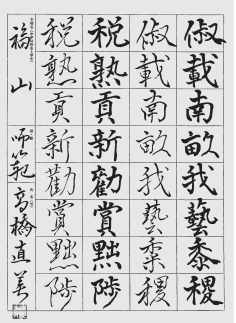 俶載南畝我藝黍稷
俶載南畝我藝黍稷
税熟貢新勸賞黜陟
税熟貢新勸賞黜陟
福山
師範
高橋直美